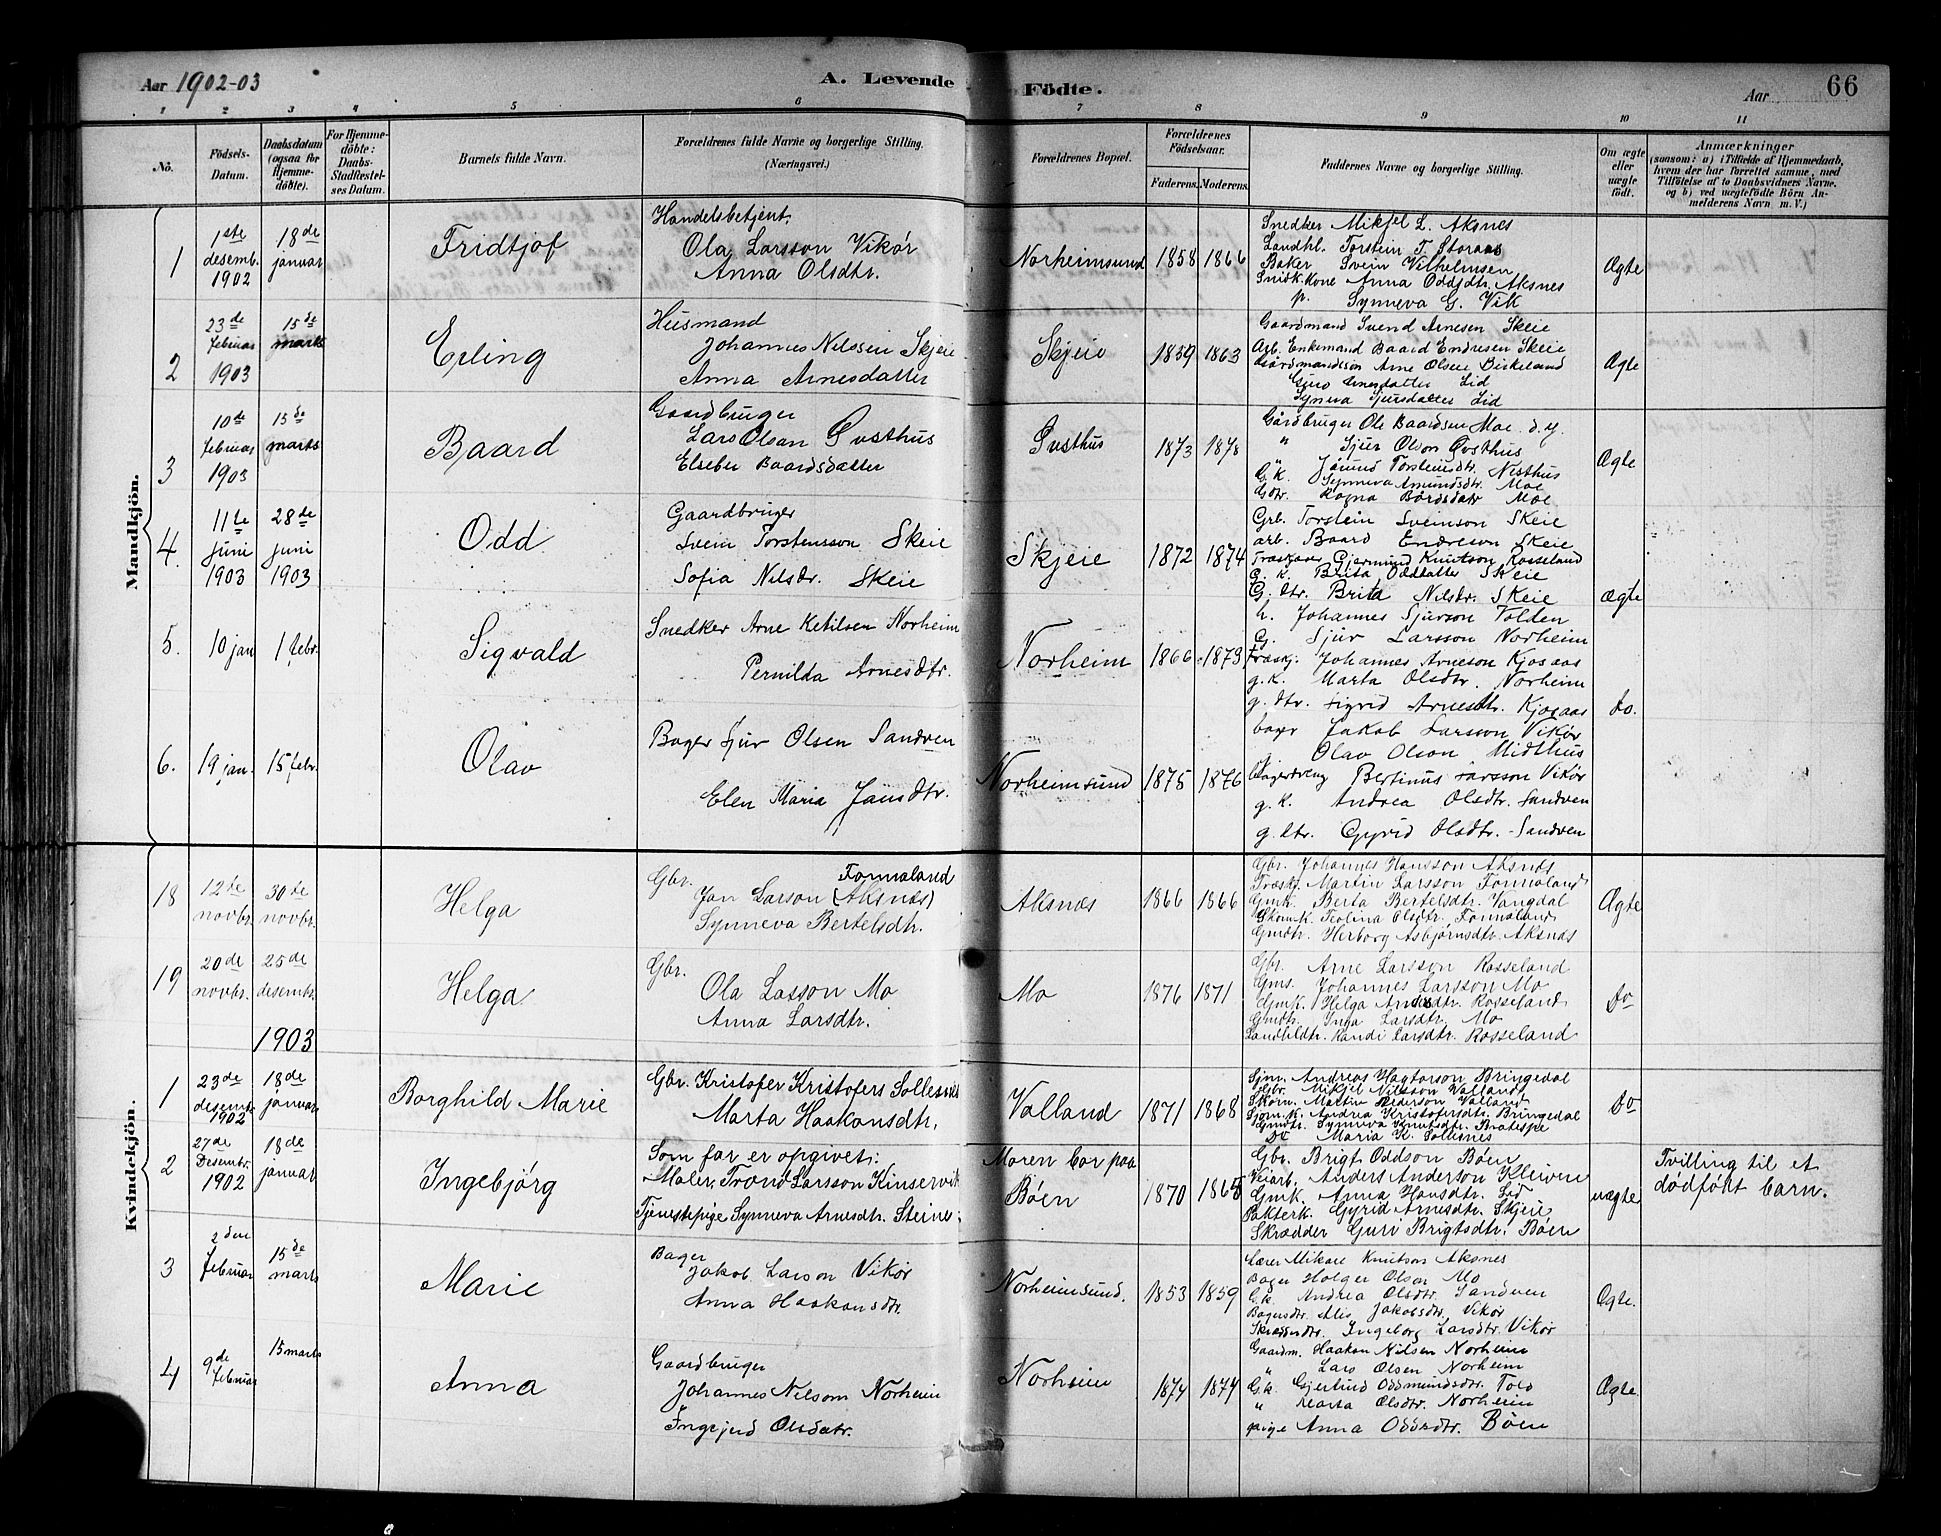 Aar 1902-03
A. Levende Födte.
Aar 66
1 2 3 4 5 6 7 8 9 10 11
No.
Födsels-Datum.
Daabsdatum (ogsaa for Hjemmedöbte).
For Hjemmedöbte: Daabs-Stadfæstelses Datum.
Barnets fulde Navn.
Forældrenes fulde Navne og borgerlige Stilling. (Næringsvei.)
Forældrenes Bopæl.
Forældrenes Födselsaar.
Faderens. Moderens.
Faddernes Navne og borgerlige Stilling.
Om ægte eller uægte födt.
Anmærkninger
(saasom: a) i Tilfælde af Hjemmedaab,
hvem der har forrettet samme, med
Tilföielse af to Daabsvidners Navne,
og b) ved uægtefödte Börn Anmelderens Navn m. V.)
Mandkjön.
1
1ste desemb. 1902
18de januar
Fridtjof
Handelsbetjent.
Ola Larsson Vikør
Anna Olsdtr.
Norheimsund
1858 1866
Snedker Mikjel L. Aksnes
Landhl. Torstein T. Storaas
Baker Svein Vilhelmsen
Snidk. kone Anna Oddsdtr. Aksnes
p. Synneva G. Vik
Ægte
2
23de februar 1903
15de marts
Erling
Husmand
Johannes Nilssen Skjeie
Anna Arnesdatter
Skjeie
1859 1863
Gaardmand Svend Arnesen Skeie
Arb. Enkemand Baard Endresen Skeie
Gårdmandssøn Arne Olsen Birkeland
Guro Arnesdatter Lid
Synneva Sjursdatter Lid
Ægte
3
10de februar 1903
15de marts
Baard
Gaardbruger
Lars Olsen Øvsthus
Elseber Baardsdatter
Øvsthus
1873 1878
Gårdbruger Ole Baardsen Moe d.y.
" Sjur Olson Øvsthus
G.k. Jørund Torsteinsdtr. Nisthus
" Synneva Amundsdtr. Moe
Gdtr. Ragna Bårdsdatr Moe
Ægte
4.
11te juni 1903
28de juni 1903
Odd
Gaardbruger
Svein Torstensson Skeie
Sofia Nilsdr. Skeie
Skjeie
1872 1874
Grb. Torstein Sveinson Skeie
arb. Baard Endreson Skeie
Træskjær Gjermund Knutson Rosseland
G. k. Brita Oddtatter Skeie
G. dtr. Brita Nilsdtr. Skeie
ægte
5.
10 jan
1 febr.
Sigvald
Snedker Arne Ketilsen Norheim
Pernilda Arnesdtr.
Norheim
1866 1873
h. Johannes Sjurson Tolden
G. Sjur Larsson Norheim
Træskj. Johannes Arneson Kjosaas
g.k. Marta Olsdtr. Norheim
g. dtr. Sigrid Arnesdtr. Kjosaas
do.
6.
19 jan.
15 febr.
Olav
Bager Sjur Olsen Sandven
Elen Maria Jansdtr.
Norheimsund
1875 1876
bager Jakob Larsson Vikør
Olav Olson Midthus
bagerdreng Bertinus Larsson Vikør
g. k. Andrea Olsdtr. Sandven
g. dtr. Gyrid Olsdtr. Sandven
Kvindekjön.
18
12te novbr.
30te novbr.
Helga
Gbr. Fonnaland
Jon Larson (Aksnæs)
Synneva Bertelsdtr.
Aksnæs
1866 1866
Gbr. Johannes Hansson Aksnæs
Træskj. Martin Larsson Fonnaland
Gmk. Berta Bertelsdtr. Vangdal
Skomk. Teolina Olsdtr. Fonnaland
Gmdtr. Herborg Asbjørnsdtr. Aksnæs
Ægte
19
20de novbr.
25de desembr.
Helga
Gbr.
Ola Lasson Mo
Anna Larsdtr.
Mo
1876 1871
Gbr. Arne Larsson Rosseland
Gms. Johannes Larsson Mo
Gmk. Helga Andersdtr. Rosseland
Gmdtr. Inga Larsdtr. Mo
Landhldtr. Randi Larsdtr. Rosseland
Do
1903
1
23de desemb. 1902
18de januar
Borghild Marie
Gbr. Kristofer Kristofers Sollesnes
Marta Haakonsdtr.
Valland
1871 1868
Sjm. Andreas Hagtorson Bringedal
Gbr. Mikjel Nilsson Valland
Skom. Martin Pederson Valland
Sjom.k. Andrea Kristofersdtr. Bringedal
Gmdtr. Synneva Knutsdtr. Bratespe
Do Maria K. Sollesnes
Do
2
27de Desembr. 1902
18de januar
Ingebjörg
Som far er opgivet:
Maler Trond Larsson Kinservik
Tjenestepige Synneva Arnesdtr. Steine.
Moren bor paa Böen
1870 1865
Gbr. Brigt Oddson Böen
Veiarb. Anders Anderson Kleiven
Gmk. Anna Hansdtr. Lid
Pakterk. Gyrid Arnesdtr. Skjeie
Skrædder Guri Brigtsdtr. Böen
uægte
Tvilling til et dödfödt barn.
3
2den februar
15de marts
Marie
Bager
Jakob Larson Vikør
Anna Haakonsdtr.
Norheimsund.
1853 1859
Lærer Mikael Knutson Aksnes
Bager Holger Olson Mo
G.k. Andrea Olsdtr. Sandven
Bagersdtr. Alis Jakobsdtr. Vikør
Skrædderdtr. Ingeborg Larsdtr. Vikør
Ægte.
4
9de februar
15 marts
Anna
Gaardbruger
Johannes Nilsson Norheim
Ingrjerd Olsdatr.
Norheim
1874 1874
Gaardm. Haakon Nilsen Norheim
" Lars Olsen Norheim
G.k. Gjertrud Oddmundsdtr. Tolo
" Marta Olsdtr. Norheim
pige Anna Oddsdtr. Böen
Ægte